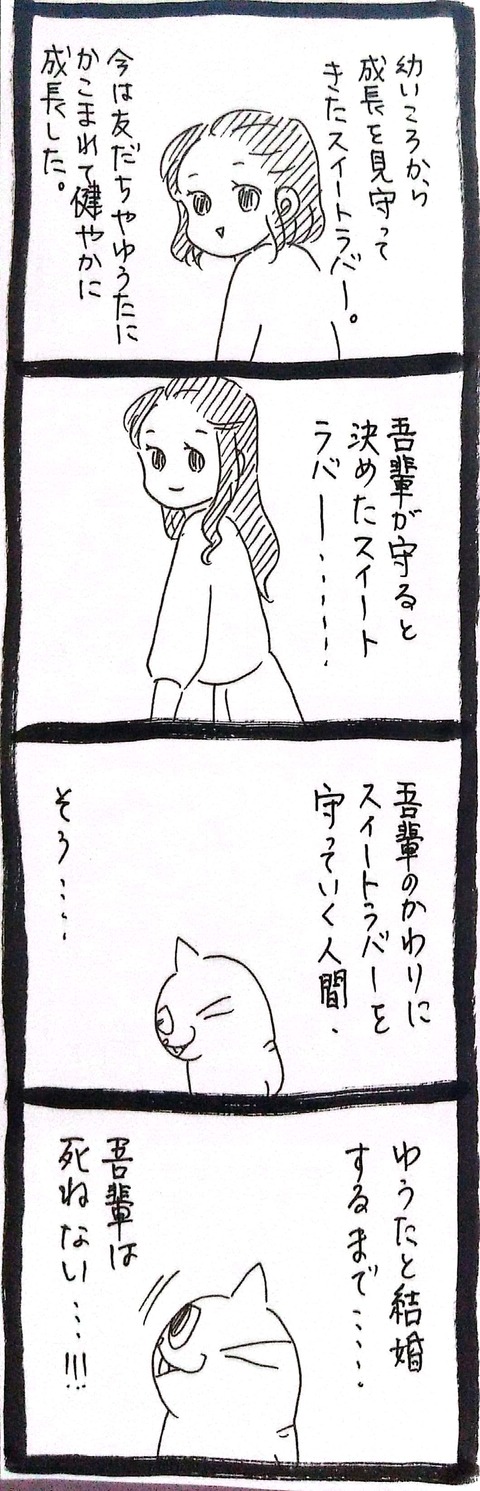 幼いころから
成長を見守って
きたスイートラバー。
今は友だちやゆうたに
かこまれて健やかに
成長した。
吾輩が守ると
決めたスイート
ラバー......
吾輩のかわりに
スイートラバーを
守っていく人間、
そう....
ゆうたと結婚
するまで....
吾輩は
死ねない...!!!